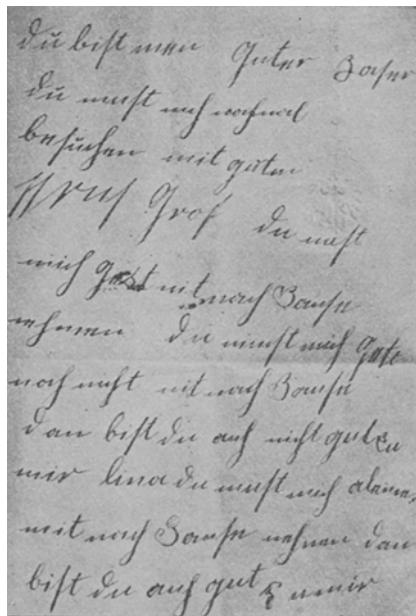 du bist men guter Baser
du must mch nochmal
besuchen mit guten
Grus Grof du mast
mich Gest mit nach Bause
nehmen du must mich Gete
noch nicht mit nach Bause
dan bist du auch nicht gut zu
mir lina du must mich aleine
mit nach Bause nehmen dan
bist du auch gut z u mir